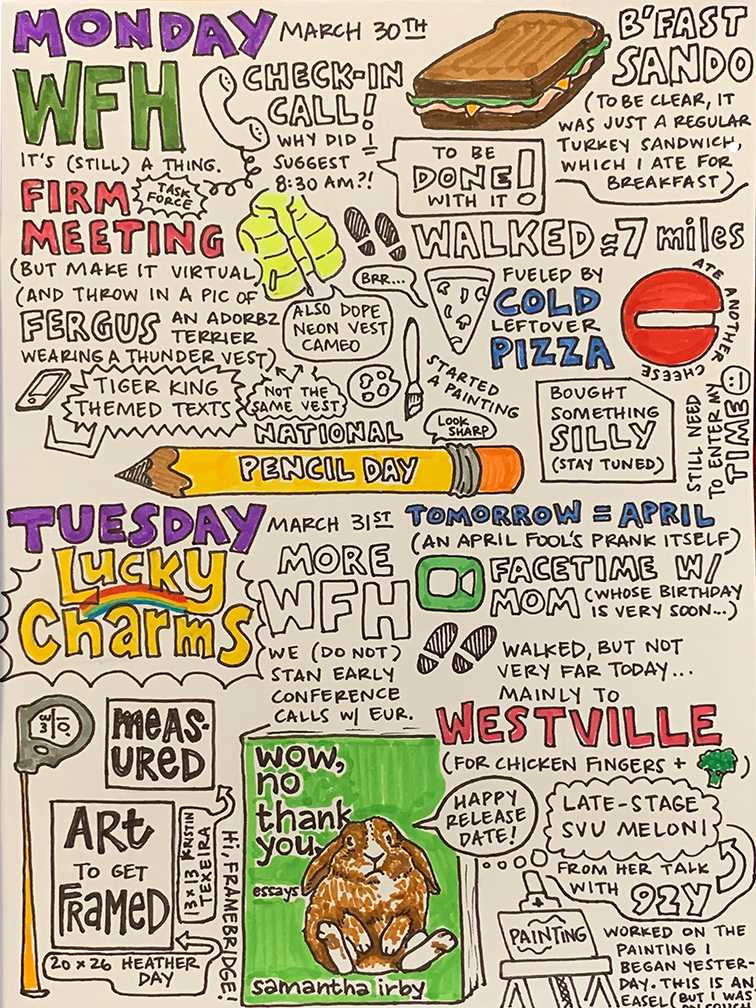 MONDAY MARCH 30TH
WFH
IT'S (STILL) A THING.
CHECK-IN
CALL!
WHY DID I
SUGGEST
8:30 AM?!
TO BE
DONE!
WITH IT
B'FAST
SANDO
(TO BE CLEAR, IT
WAS JUST A REGULAR
TURKEY SANDWICH,
WHICH I ATE FOR
BREAKFAST)
FIRM
TASK
FORCE
MEETING
(BUT MAKE IT VIRTUAL
(AND THROW IN A PIC OF
FERGUS AN ADORBZ
TERRIER
WEARING A THUNDER VEST)
ALSO DOPE
NEON VEST
CAMEO
NOT THE
SAME VEST
WALKED ≈7 miles
BRR...
FUELED BY
COLD
LEFTOVER
PIZZA
ATE ANOTHER CHEESE
TIGER KING
THEMED TEXTS
STARTED
A PAINTING
BOUGHT
SOMETHING
SILLY
(STAY TUNED)
STILL NEED
TO ENTER MY
TIME :)
NATIONAL
PENCIL DAY
LOOK
SHARP
TUESDAY MARCH 31ST
Lucky
Charms
MORE
WFH
WE (DO NOT)
STAN EARLY
CONFERENCE
CALLS W/ EUR.
TOMORROW = APRIL
(AN APRIL FOOL'S PRANK ITSELF)
FACETIME W/
MOM (WHOSE BIRTHDAY
IS VERY SOON...)
WALKED, BUT NOT
VERY FAR TODAY...
MAINLY TO
WESTVILLE
(FOR CHICKEN FINGERS + )
measured
ARt
TO GET
FRAMED
13 x 13 KRISTIN
TEXEIRA
20 x 26 HEATHER
DAY
Hi, FRAMEBRIDGE!
wow,
no
thank
you.
essays
samantha irby
HAPPY
RELEASE
DATE!
LATE-STAGE
SVU MELONI
FROM HER TALK
WITH 92Y
PAINTING
WORKED ON THE
PAINTING I
BEGAN YESTER-
DAY. THIS IS AN
EASEL, BUT I WAS